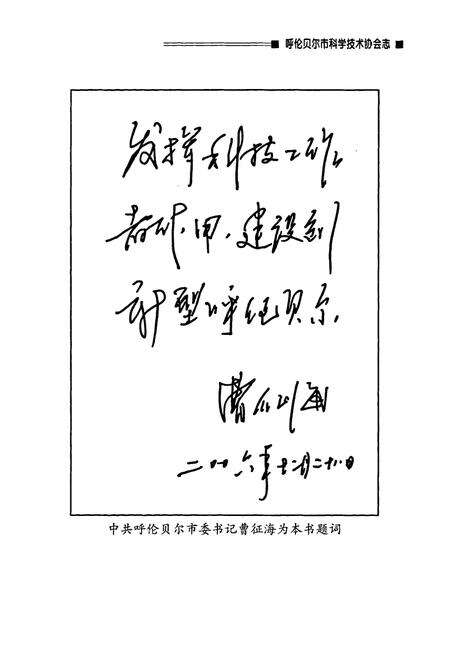 呼伦贝尔市科学技术协会志
发挥科技工作
者的作用，建设创
新型呼伦贝尔。
曹征海
二〇〇六年十二月二十八日
中共呼伦贝尔市委书记曹征海为本书题词